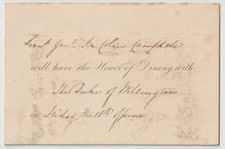 Lieut Genl. Sir Colin Campbell
will have the Honor of Dining with
The Duke of Wellington
on Friday the 18th of June